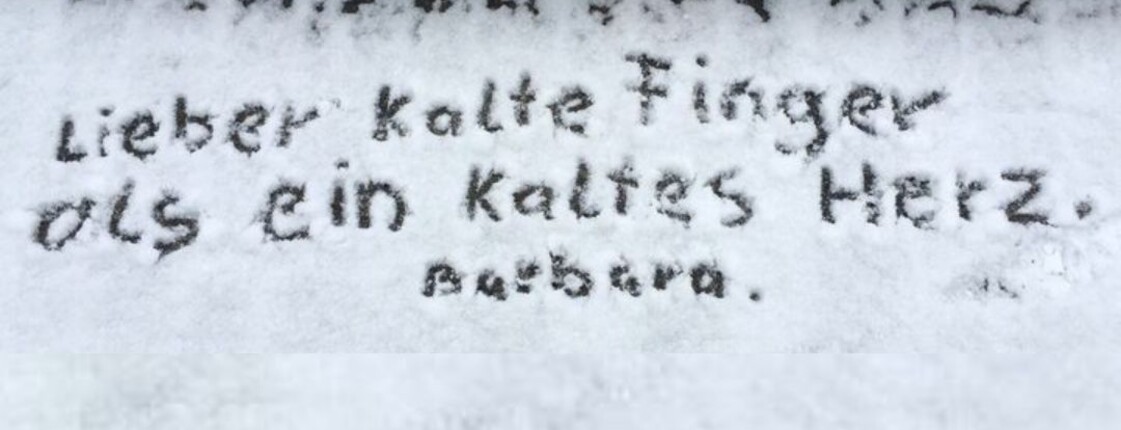 Lieber kalte Finger
als ein kaltes Herz.
Barbara.